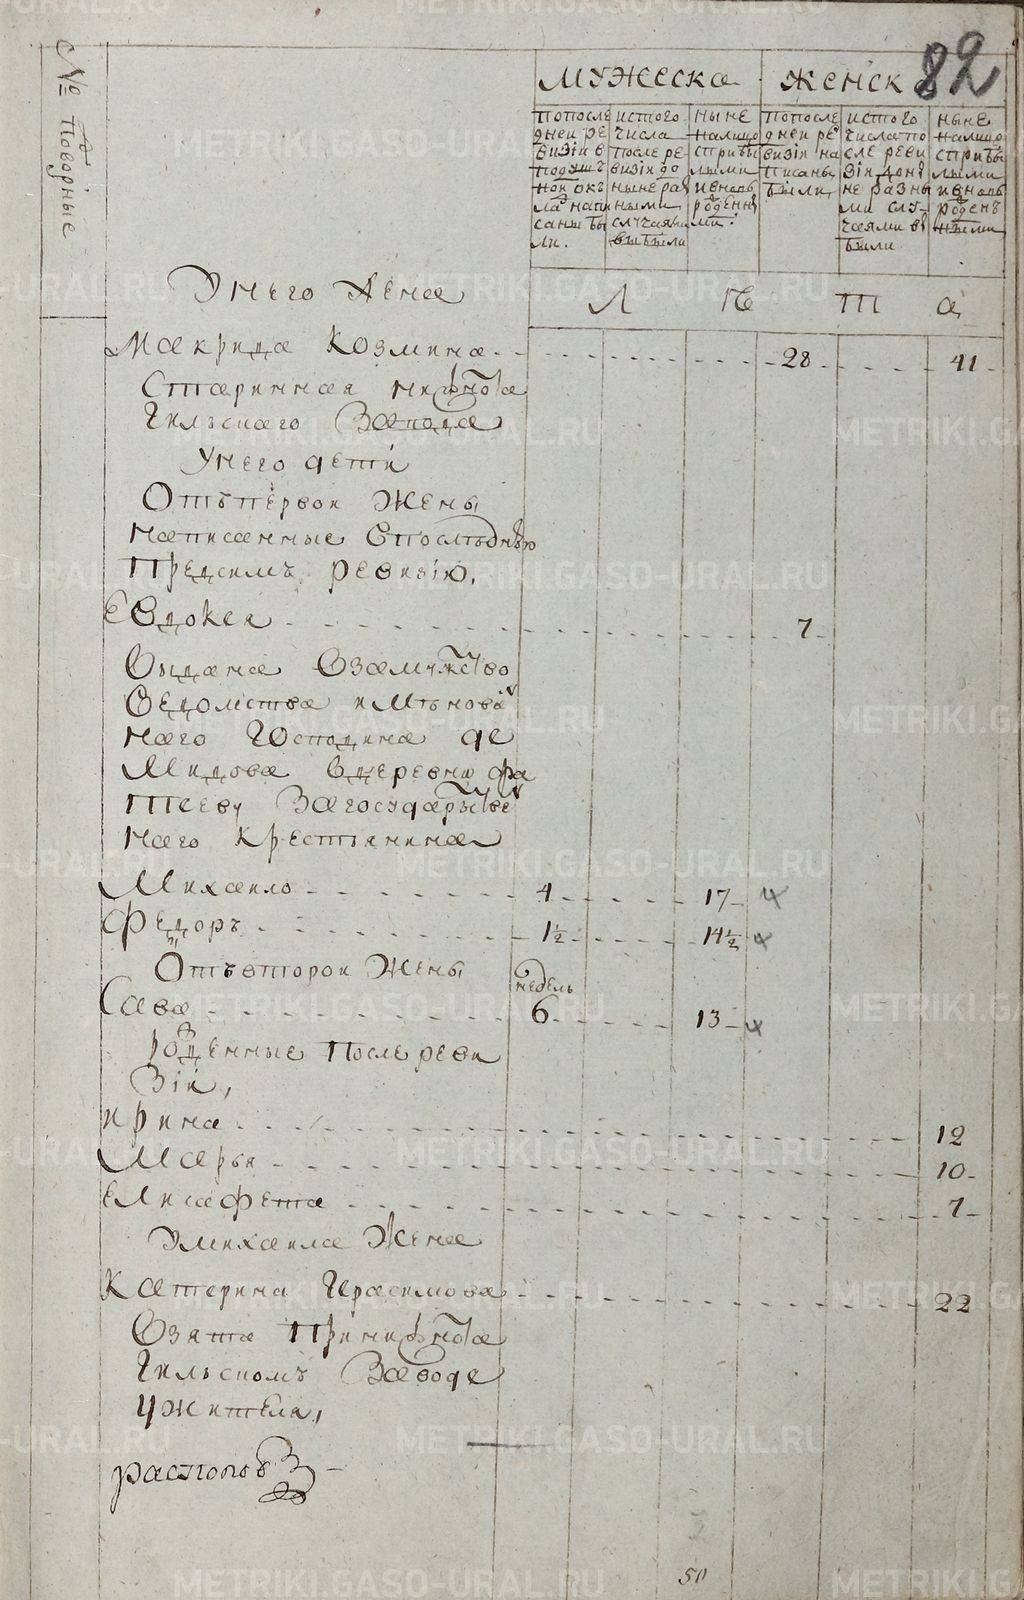 82
№ подворные
мужеска
женск
по после
дней ре
визіи в
подуш
ной ок
ла напи
саны бы
ли.
ис того
числа
после ре
визіи до
ныне ра
зными
случаями
выбыли
ныне
налицо
с прибы
лыми
и вновь
рожденны
ми.
по после
дней ре
визіи на
писаны
были
ис того
числа по
сле реви
зіи доны
не разны
ми слу
чаями вы
были
ныне
налицо
с прибы
лыми
и вновь
рожден
ными
Л е т а
У него жена
Макрида Козмина 28 41
Старинная нижнота
гильскаго завода
У него дети
Отъ первой жены
написанные в последнюю
пред симъ ревизію,
Евдокея 7
выдана в замужство
ведомства имянова
наго господина де
мидова в деревню фа
тееву за государстве
наго крестьянина
Михаило 4 17
Федоръ 1½ 14½
Отъ второй жены
недель
Сава 6 13
рожденные после реви
зіи,
Ирина 12
Марья 10
Елисафета 7
У михаила жена
Катерина Герасимова 22
взята при нижнота
гильскомъ заводе
у жителя,
распоповъ
50
METRIKI.GASO-URAL.RU